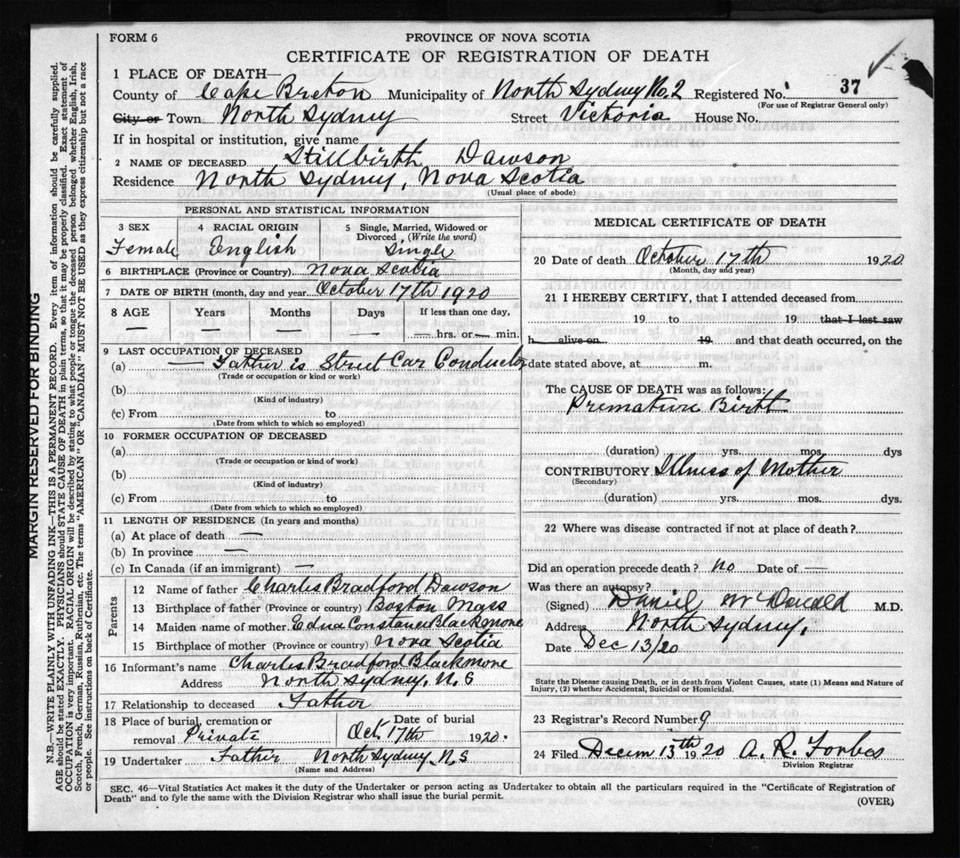 FORM 6
PROVINCE OF NOVA SCOTIA
CERTIFICATE OF REGISTRATION OF DEATH
1 PLACE OF DEATH—
County of Cape Breton Municipality of North Sydney No. 2 Registered No. 37
(For use of Registrar General only)
City or Town North Sydney Street Victoria House No.
If in hospital or institution, give name
2 NAME OF DECEASED Stillbirth Dawson
Residence North Sydney, Nova Scotia
(Usual place of abode)
PERSONAL AND STATISTICAL INFORMATION
3 SEX 4 RACIAL ORIGIN 5 Single, Married, Widowed or Divorced (Write the word)
Female English Single
6 BIRTHPLACE (Province or Country) Nova Scotia
7 DATE OF BIRTH (month, day and year) October 17th 1920
8 AGE Years Months Days If less than one day,
— — — — — hrs. or — min.
9 LAST OCCUPATION OF DECEASED
(a) — Father is Street Car Conductor
(Trade or occupation or kind or work)
(b)
(Kind of industry)
(c) From to
(Date from which to which so employed)
10 FORMER OCCUPATION OF DECEASED
(a)
(Trade or occupation or kind of work)
(b)
(Kind of industry)
(c) From to
(Date from which to which so employed)
11 LENGTH OF RESIDENCE (In years and months)
(a) At place of death —
(b) In province —
(c) In Canada (if an immigrant) —
Parents
12 Name of father Charles Bradford Dawson
13 Birthplace of father (Province or country) Boston Mass
14 Maiden name of mother Edna Constance Blackmore
15 Birthplace of mother (Province or country) Nova Scotia
16 Informant's name Charles Bradford Blackmore
Address North Sydney, N.S
17 Relationship to deceased Father
18 Place of burial, cremation or removal Private Date of burial Oct. 17th 1920.
19 Undertaker Father North Sydney N.S
(Name and Address)
MEDICAL CERTIFICATE OF DEATH
20 Date of death October 17th 1920
(Month, day and year)
21 I HEREBY CERTIFY, that I attended deceased from
19 to 19 that I last saw
h alive on 19 and that death occurred, on the
date stated above, at m.
The CAUSE OF DEATH was as follows:
Premature Birth
(duration) yrs. mos. dys
CONTRIBUTORY Illness of Mother
(Secondary)
(duration) yrs. mos. dys.
22 Where was disease contracted if not at place of death?
Did an operation precede death? no Date of —
Was there an autopsy?
(Signed) Daniel McDonald M.D.
Address North Sydney,
Date Dec 13/20
State the Disease causing Death, or in death from Violent Causes, state (1) Means and Nature of
Injury, (2) whether Accidental, Suicidal or Homicidal.
23 Registrar's Record Number 9
24 Filed Decem 13th 1920 A. R. Forbes
Division Registrar
SEC. 46—Vital Statistics Act makes it the duty of the Undertaker or person acting as Undertaker to obtain all the particulars required in the "Certificate of Registration of
Death" and to fyle the same with the Division Registrar who shall issue the burial permit.
(OVER)
MARGIN RESERVED FOR BINDING
N.B.—WRITE PLAINLY WITH UNFADING INK—THIS IS A PERMANENT RECORD. Every item of information should be carefully supplied.
AGE should be stated EXACTLY. PHYSICIANS should STATE CAUSE OF DEATH in plain terms, so that it may be properly classified. Exact statement of
OCCUPATION is very important. RACIAL ORIGIN will be described by stating to what people or tongue the deceased person belonged whether English, Irish,
Scotch, French, German, Russian, Ruthenian, etc. The terms "AMERICAN" OR "CANADIAN" MUST NOT BE USED as they express citizenship but not a race
or people. See instructions on back of Certificate.